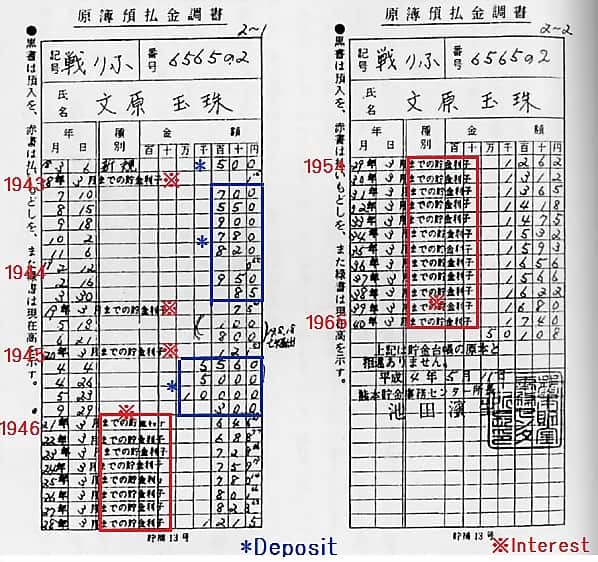 原簿預払金調書
2~1
●黒書は預入を、赤書は払いもどしを、また緑書は現在高を示す。●
記号 戦りふ 番号 6565の2
氏名 文原玉珠
年月日 種別 金額
百十万千百十円
18 3 6 新規 * 500
1943 18年3月までの貯金利子 ※
7 10 700
8 15 550
9 18 900
10 2 * 780
11 6 820
1944 2 12
2 16 950
3 30 85
19年3月までの貯金利子 ※ 75
5 18 100
6 21 800
1945 20年3月までの貯金利子 ※ 121
4 4 5560
4 26 * 5000
5 23 10000
9 29 ※ 300
1946 21年3月までの貯金利子 646
22年3月までの貯金利子 688
23年3月までの貯金利子 728
24年3月までの貯金利子 757
25年3月までの貯金利子 787
26年3月までの貯金利子 801
27年3月までの貯金利子 823
28年3月までの貯金利子 1215
貯補13号
*Deposit
原簿預払金調書
2~2
●黒書は預入を、赤書は払いもどしを、また緑書は現在高を示す。
記号 戦りふ 番号 6565の2
氏名 文原玉珠
年月日 種別 金額
百十万千百十円
1954 29年3月までの貯金利子 1262
30年3月までの貯金利子 1312
31年3月までの貯金利子 1365
32年3月までの貯金利子 1418
33年3月までの貯金利子 1475
34年3月までの貯金利子 1532
35年3月までの貯金利子 1593
36年3月までの貯金利子 1656
37年3月までの貯金利子 1566
38年3月までの貯金利子 1632
39年3月までの貯金利子 ※ 1680
1965 40年3月までの貯金利子 1740
50108
上記は貯金台帳の原本と
相違ありません。
平成4年5月11日
熊本貯金事務センター所長
池田
貯補13号
※Interest